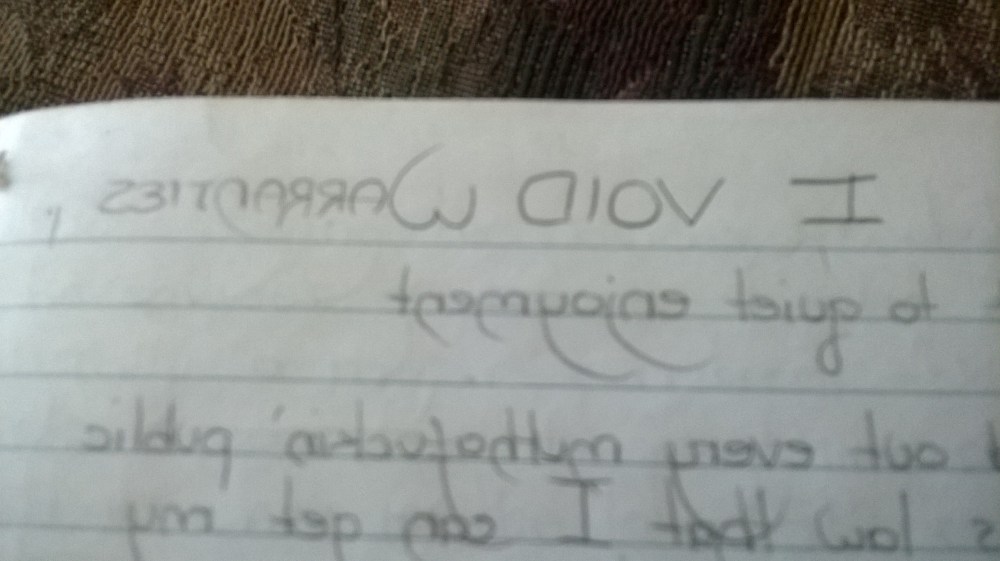 I VOID WARRANTIES,
to quiet enjoyment
out every muthafuckin' public
low that I can get my